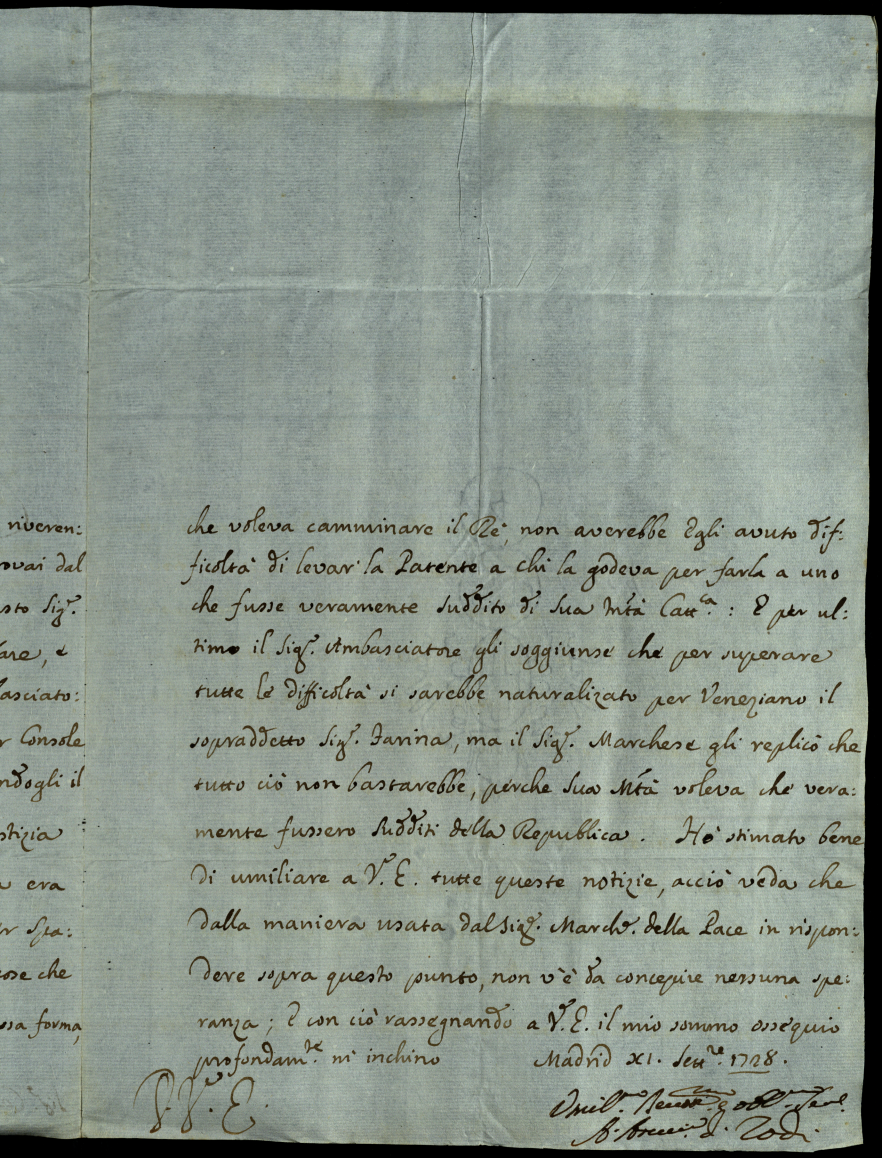 riveren:
ovai dal
sto Sig.r
are, e
basciato:
r Console
ndogli il
stizia
a era
r Spa:
cose che
ssa forma,
che voleva camminare il Rè, non averebbe Egli avuto dif:
ficoltà di levar' la Patente a chi la godeva per farla a uno
che fusse veramente suddito di Sua M.tà Catt.ca : E per ul:
timo il Sig.r Ambasciatore gli soggiunse che per superare
tutte le difficoltà si sarebbe naturalizato per Veneziano il
sopraddetto Sig.r Farina, ma il Sig.r Marchese gli replicò che
tutto ciò non bastarebbe, perche Sua M.tà voleva che vera:
mente fussero sudditi della Republica. Hò stimato bene
di umiliare a V.E. tutte queste notizie, acciò veda che
dalla maniera usata dal Sig.r March.e della Pace in rispon:
dere sopra questo punto, non v'è da concepire nessuna spe:
ranza; E con ciò rassegnando a V.E. il mio sommo ossequio
profondam.te m'inchino Madrid XI. Sett.re 1728.
V.E.
Umil.mo e Obl.mo Ser.e